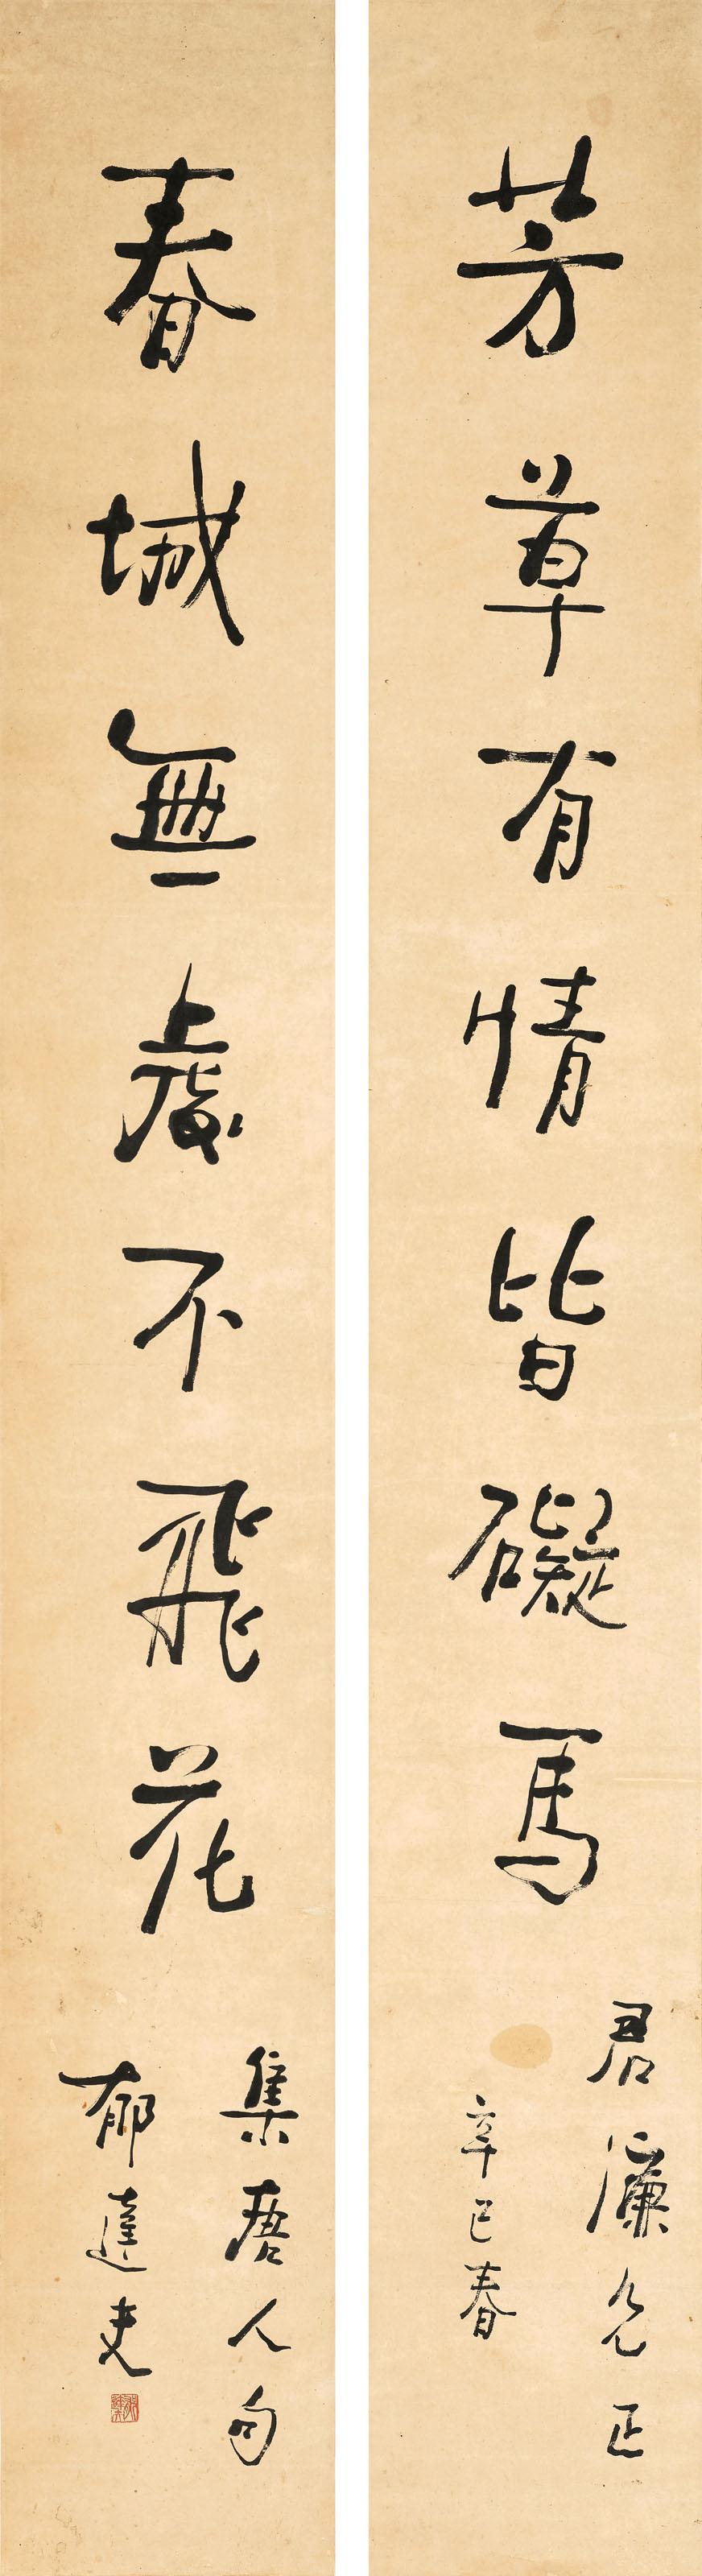 芳草有情皆礙馬
君濂兄正
辛巳春
春城無處不飛花
集唐人句
郁達夫